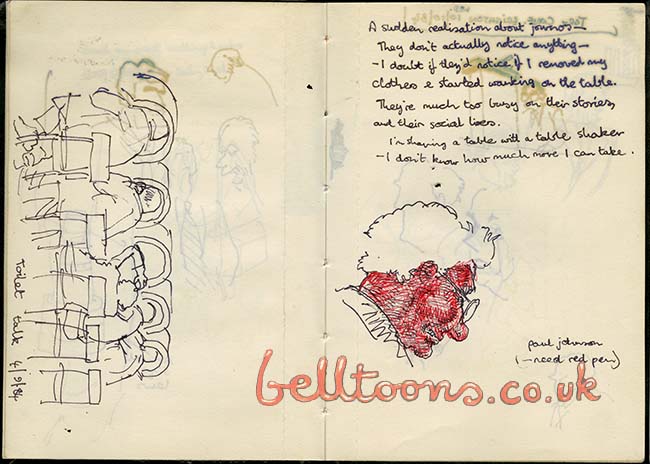 Toilet talk 4/9/84
A sudden realisation about journos—
They don't actually notice anything—
- I doubt if they'd notice if I removed my
clothes & started wanking on the table.
They're much too busy on their stories,
and their social lives.
I'm sharing a table with a table shaker
- I don't know how much more I can take.
paul johnson
(— need red pen)
belltoons.co.uk